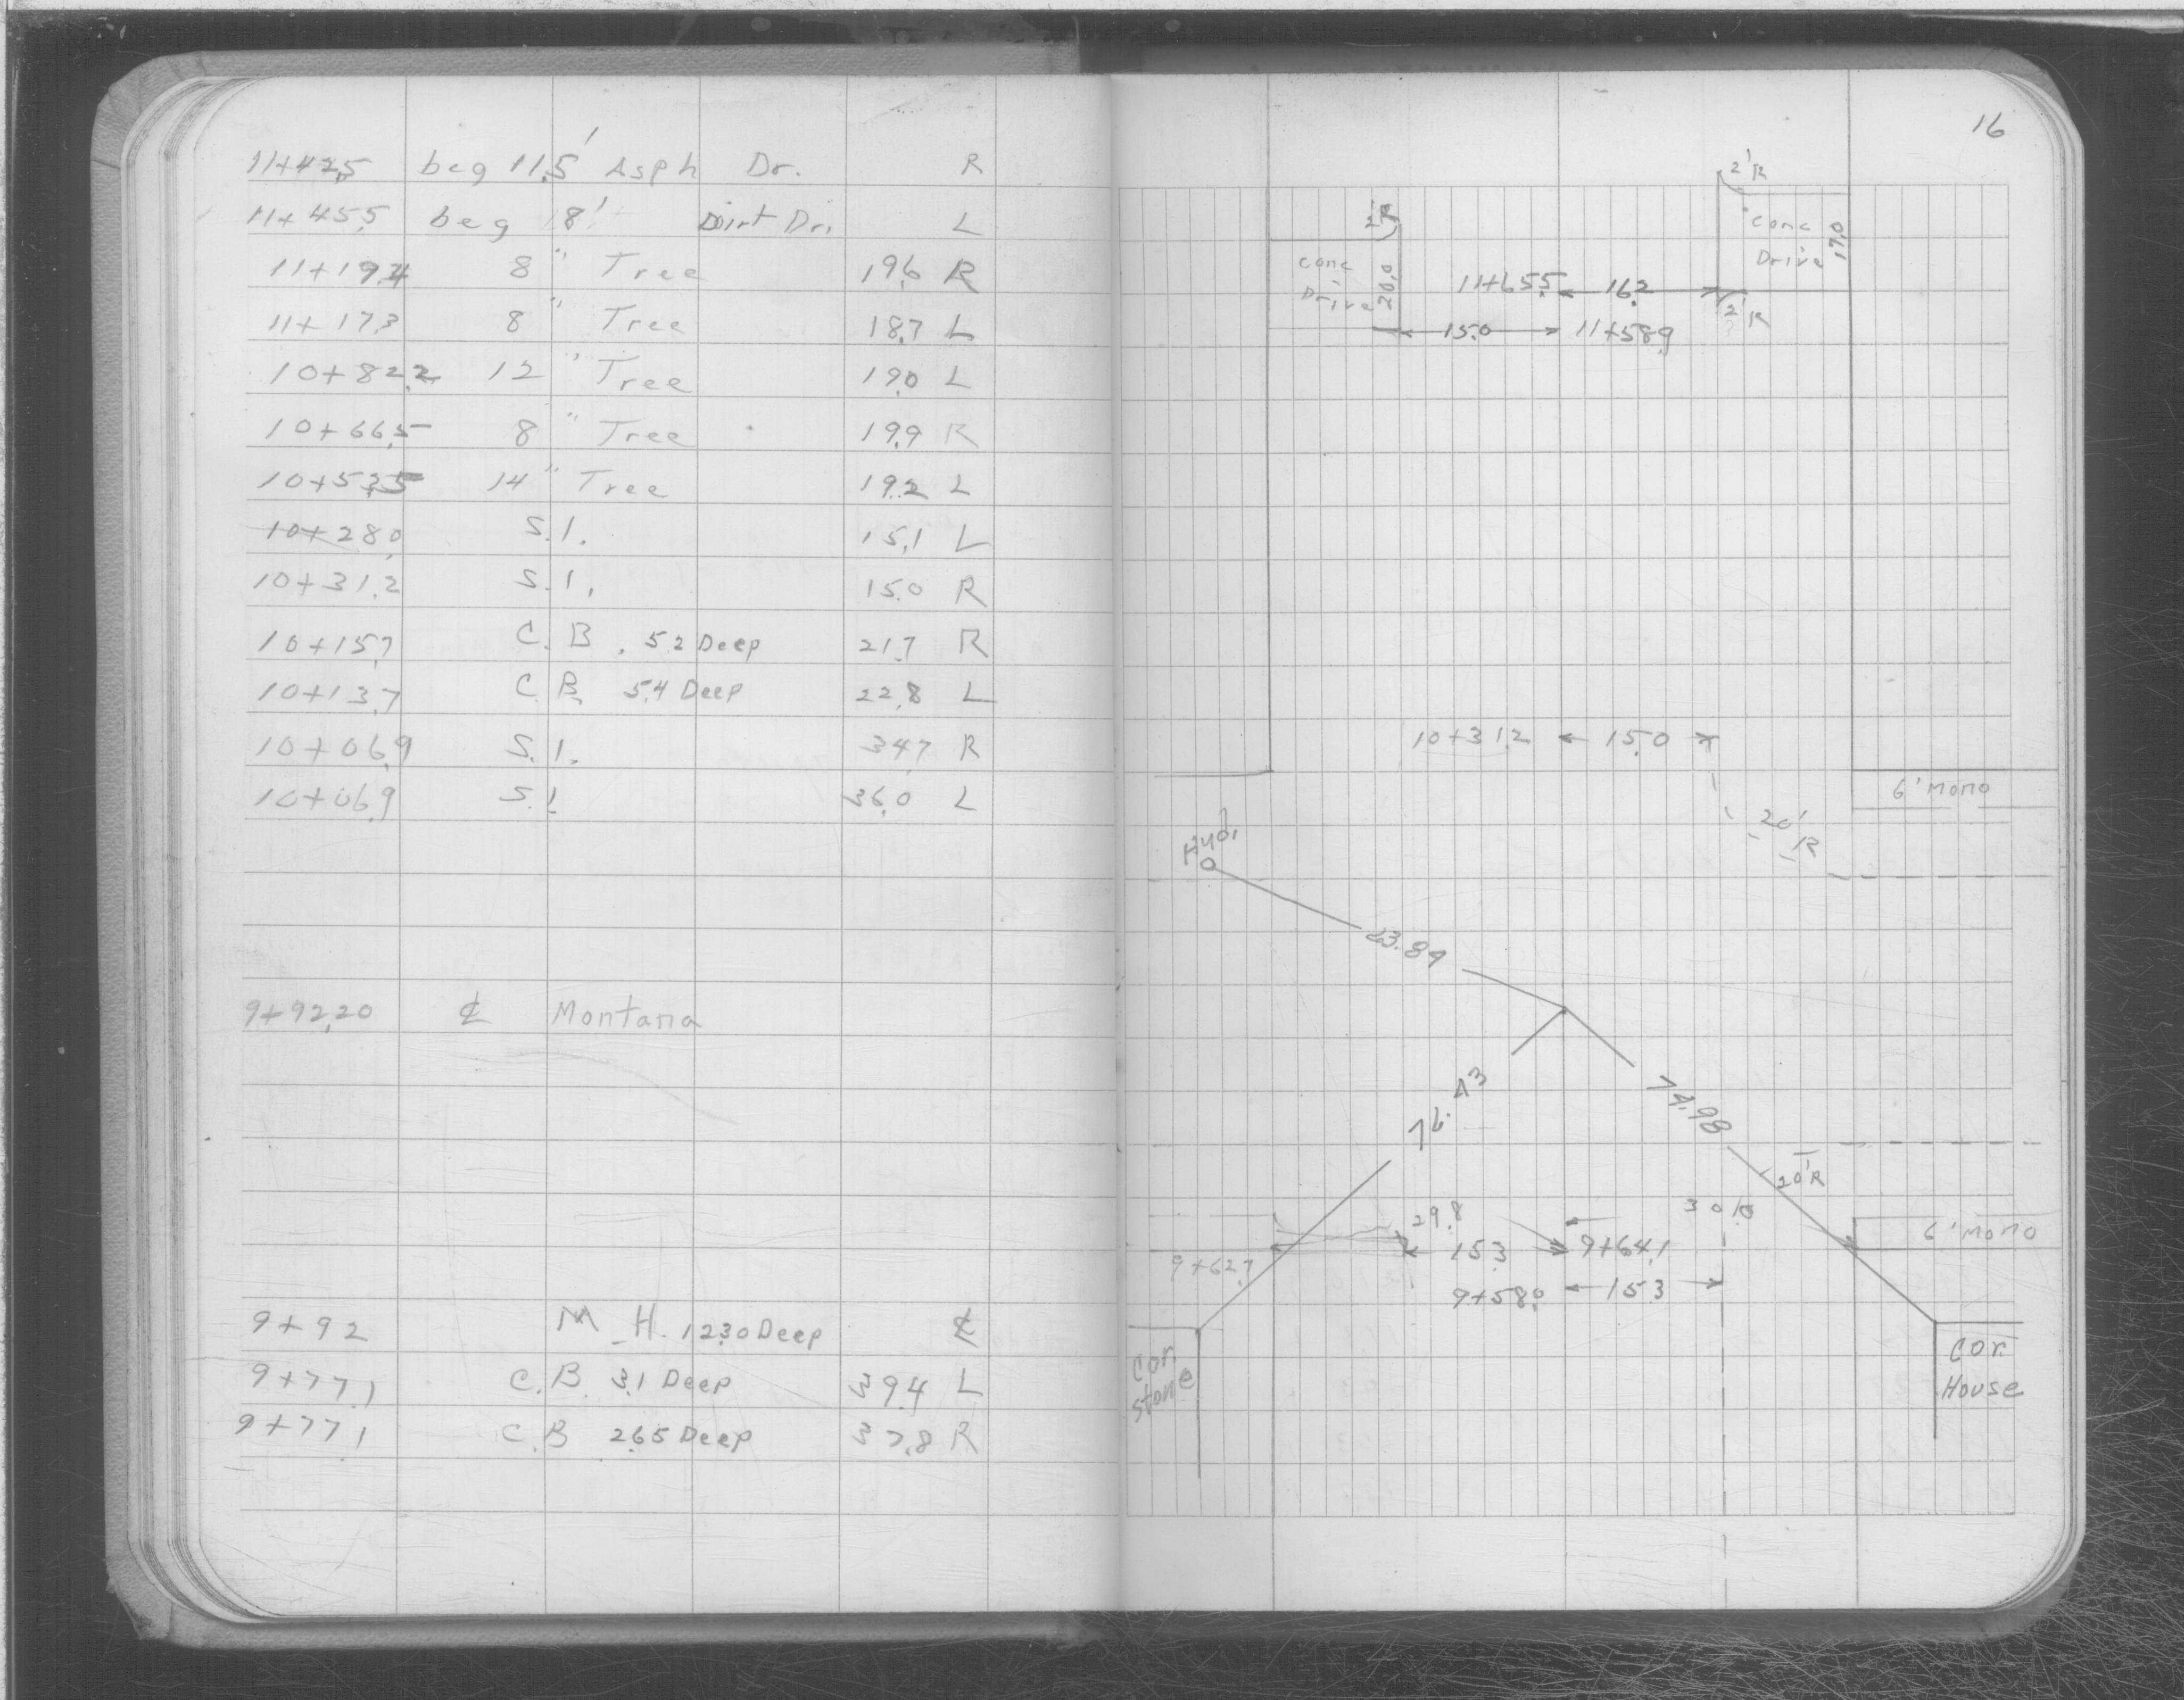 11+42.5 beg 11.5' Asph Dr. R
11+45.5 beg 18' Dirt Dr. L
11+19.4 8" Tree 19.6 R
11+17.3 8" Tree 18.7 L
10+82.2 12" Tree 19.0 L
10+66.5 8" Tree 19.9 R
10+53.5 14" Tree 19.2 L
10+28.0 S.I. 15.1 L
10+31.2 S.I. 15.0 R
10+15.7 C.B. 5.2 Deep 21.7 R
10+13.7 C.B. 5.4 Deep 22.8 L
10+06.9 S.I. 34.7 R
10+06.9 S.I 36.0 L
9+92.20 ℄ Montana
9+92 M.H. 12.30 Deep ℄
9+77.1 C.B. 3.1 Deep 39.4 L
9+77.1 C.B 2.65 Deep 37.8 R
16
2'R
2'R
Conc Drive 17.0
Conc Drive 20.0
11+65.5 16.2
2'R
15.0 11+58.9
10+31.2 15.0
6' Mono
20'R
Hyd.
83.89
76.43
74.98
20'R
29.8
30
6' Mono
9+62.7
15.3 9+64.1
9+58.0 15.3
Cor. Stone
Cor. House